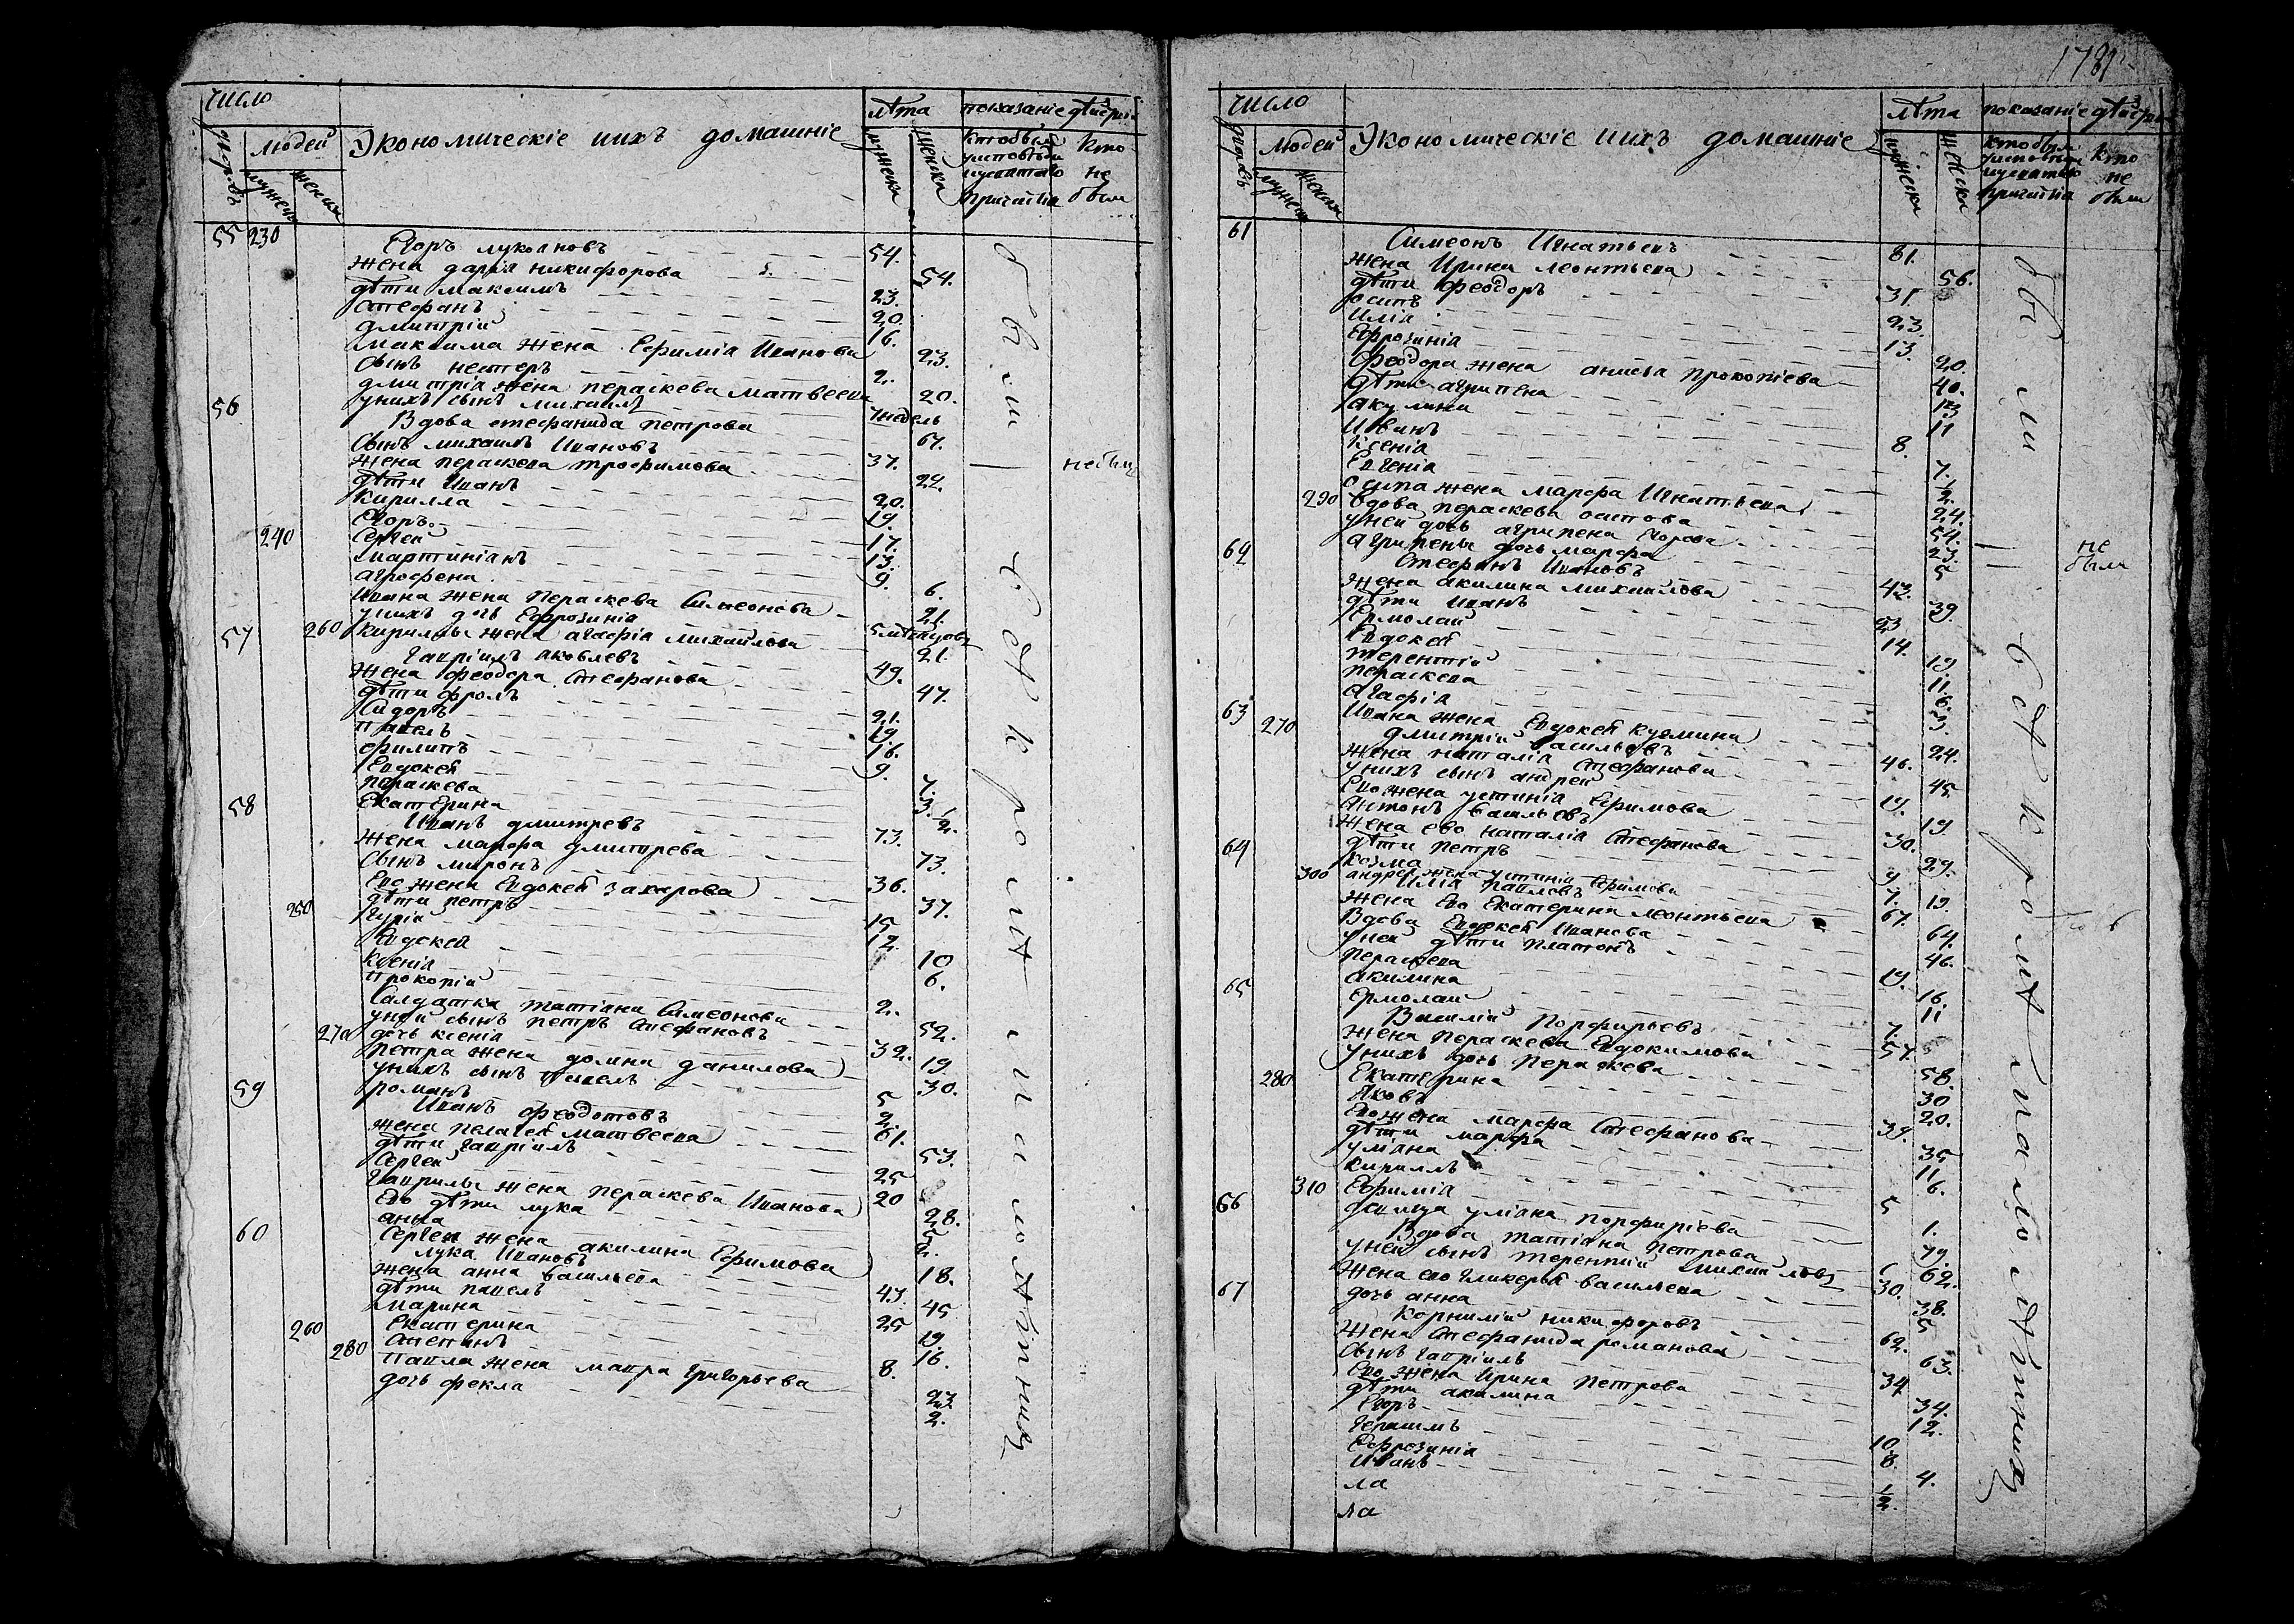 число
людей
Экономическіе ихъ домашніе
лѣта
показаніе дѣйств
дворовъ
мужеска
женска
мужеска
женска
кто былъ у исповѣди и святаго причастія
кто не были
55 230
Егоръ лукоановъ 54.
жена дарія никифорова 54.
дѣти максимъ 23.
стефанъ 20.
дмитріи 16.
максима жена Ефиміа Иванова 23.
сынъ нестеръ 2.
дмитріа жена пераскева матвеева 20.
унихъ сынъ михаилъ 7 недель
56
Вдова стефанида петрова 67.
сынъ михаилъ Ивановъ 37.
жена пераскева трофимова 24. небыла
дѣти Иванъ 20.
кирилла 19.
Егоръ 17.
240
Сергеи 13.
мартиніанъ 9.
агрофена 6.
Ивана жена пераскева Симеонова 21.
унихъ дочь Ефрозиніа 5 мѣсецовъ
260 кирилы жена агафіа михаилова 21.
57
гавріилъ яковлевъ 49.
жена феодора стефанова 47.
дѣти фролъ 21.
Сидоръ 19
павелъ 16.
филипъ 9.
Евдокея 7.
пераскева 3.
Екатерина 1/2.
58
Иванъ дмитревъ 73.
жена марфа дмитрева 73.
сынъ миронъ 36.
Ево жена Евдокея захарова 37.
250
дѣти петръ 15
гуріа 12.
Евдокея 10
ксеніа 6.
прокопіи 2.
Салдатка татіана Симеонова 52.
уней сынъ петръ Стефановъ 32.
270 дочь ксеніа 19
петра жена домна данилова 30.
унихъ сынъ павелъ 5
романъ 2.
59
Иванъ федотовъ 61.
жена пелагея матвеева 53.
дѣти гавріилъ 25
Сергеи 20
гаврилы жена пераскева Иванова 28.
Ево дѣти лука 5
анна 2.
Сергея жена акилина Ефимова 18.
60
лука Ивановъ 43.
жена анна васильева 45
дѣти павелъ 25
марина 19.
Екатерина 16.
260
Степанъ 8.
280 павла жена мавра григорьева 23.
дочь фекла 2.
были всѣ кромѣ малолѣтнихъ
178
число
людей
Экономическіе ихъ домашніе
лѣта
показаніе дѣйств
дворовъ
мужеска
женска
мужеска
женска
кто былъ у исповѣди и святаго причастіа
кто не были
61
Симеонъ Игнатьевъ 81.
жена Ирина леонтьева 56.
дѣти феодоръ 31
осипъ 23.
Иліа 13.
Ефрозиніа 20.
феодора жена анисіа прокопіева 40.
дѣти агрипена 13
акулина 11
Иванъ 8.
ксеніа 7.
Евгеніа 1/2.
осипа жена марфа Игнатьева 24.
290 вдова пераскева осипова 54.
уней дочь агрипена Егорова 23.
агрипены дочь марфа 5
не были
62
Стефанъ Ивановъ 43.
жена акилина михаилова 39.
дѣти Иванъ 23
Ермолаи 14.
Евдокея 19.
терентіи 11.
пераскева 6.
агафіа 3.
Ивана жена Евдокея кузмина 24.
63 270
дмитріи васильевъ 46.
жена наталіа стефанова 45.
унихъ сынъ андреи 19.
Ево жена устиніа Ефимова 19.
антонъ васильевъ 30.
жена ево наталіа Стефанова 29.
дѣти петръ 9
козма 7.
300 андрея жена устиніа Ефимова 19.
64
Иліа павловъ 67.
жена Ево Екатерина леонтьева 64.
Вдова Евдокея Иванова 46.
уней дѣти платонъ 19.
пераскева 16.
акилина 11
Ермолаи 7.
65
Василіи порфирьевъ 57.
жена пераскева Евдокимова 58.
унихъ дочь пераскева 30
Екатерина 20.
280
яковъ 39.
Ево жена марфа Стефанова 35
дѣти марфа 11
уліана 6.
кириллъ 5
310 Ефиміа 1.
девица уліана порфиріева 79.
66
Вдова татіана петрова 62.
уней сынъ терентіи михаиловъ 30.
жена ево гликерья васильева 38.
дочь анна 5
67
корниліи никифоровъ 62.
жена Стефанида романова 63.
сынъ гавріилъ 34
Ево жена Ирина петрова 34.
дѣти акилина 12.
Егоръ 10.
герасимъ 8.
Ефрозиніа 4.
Иванъ 1/2
ла
ла
были всѣ кромѣ малолѣтнихъ